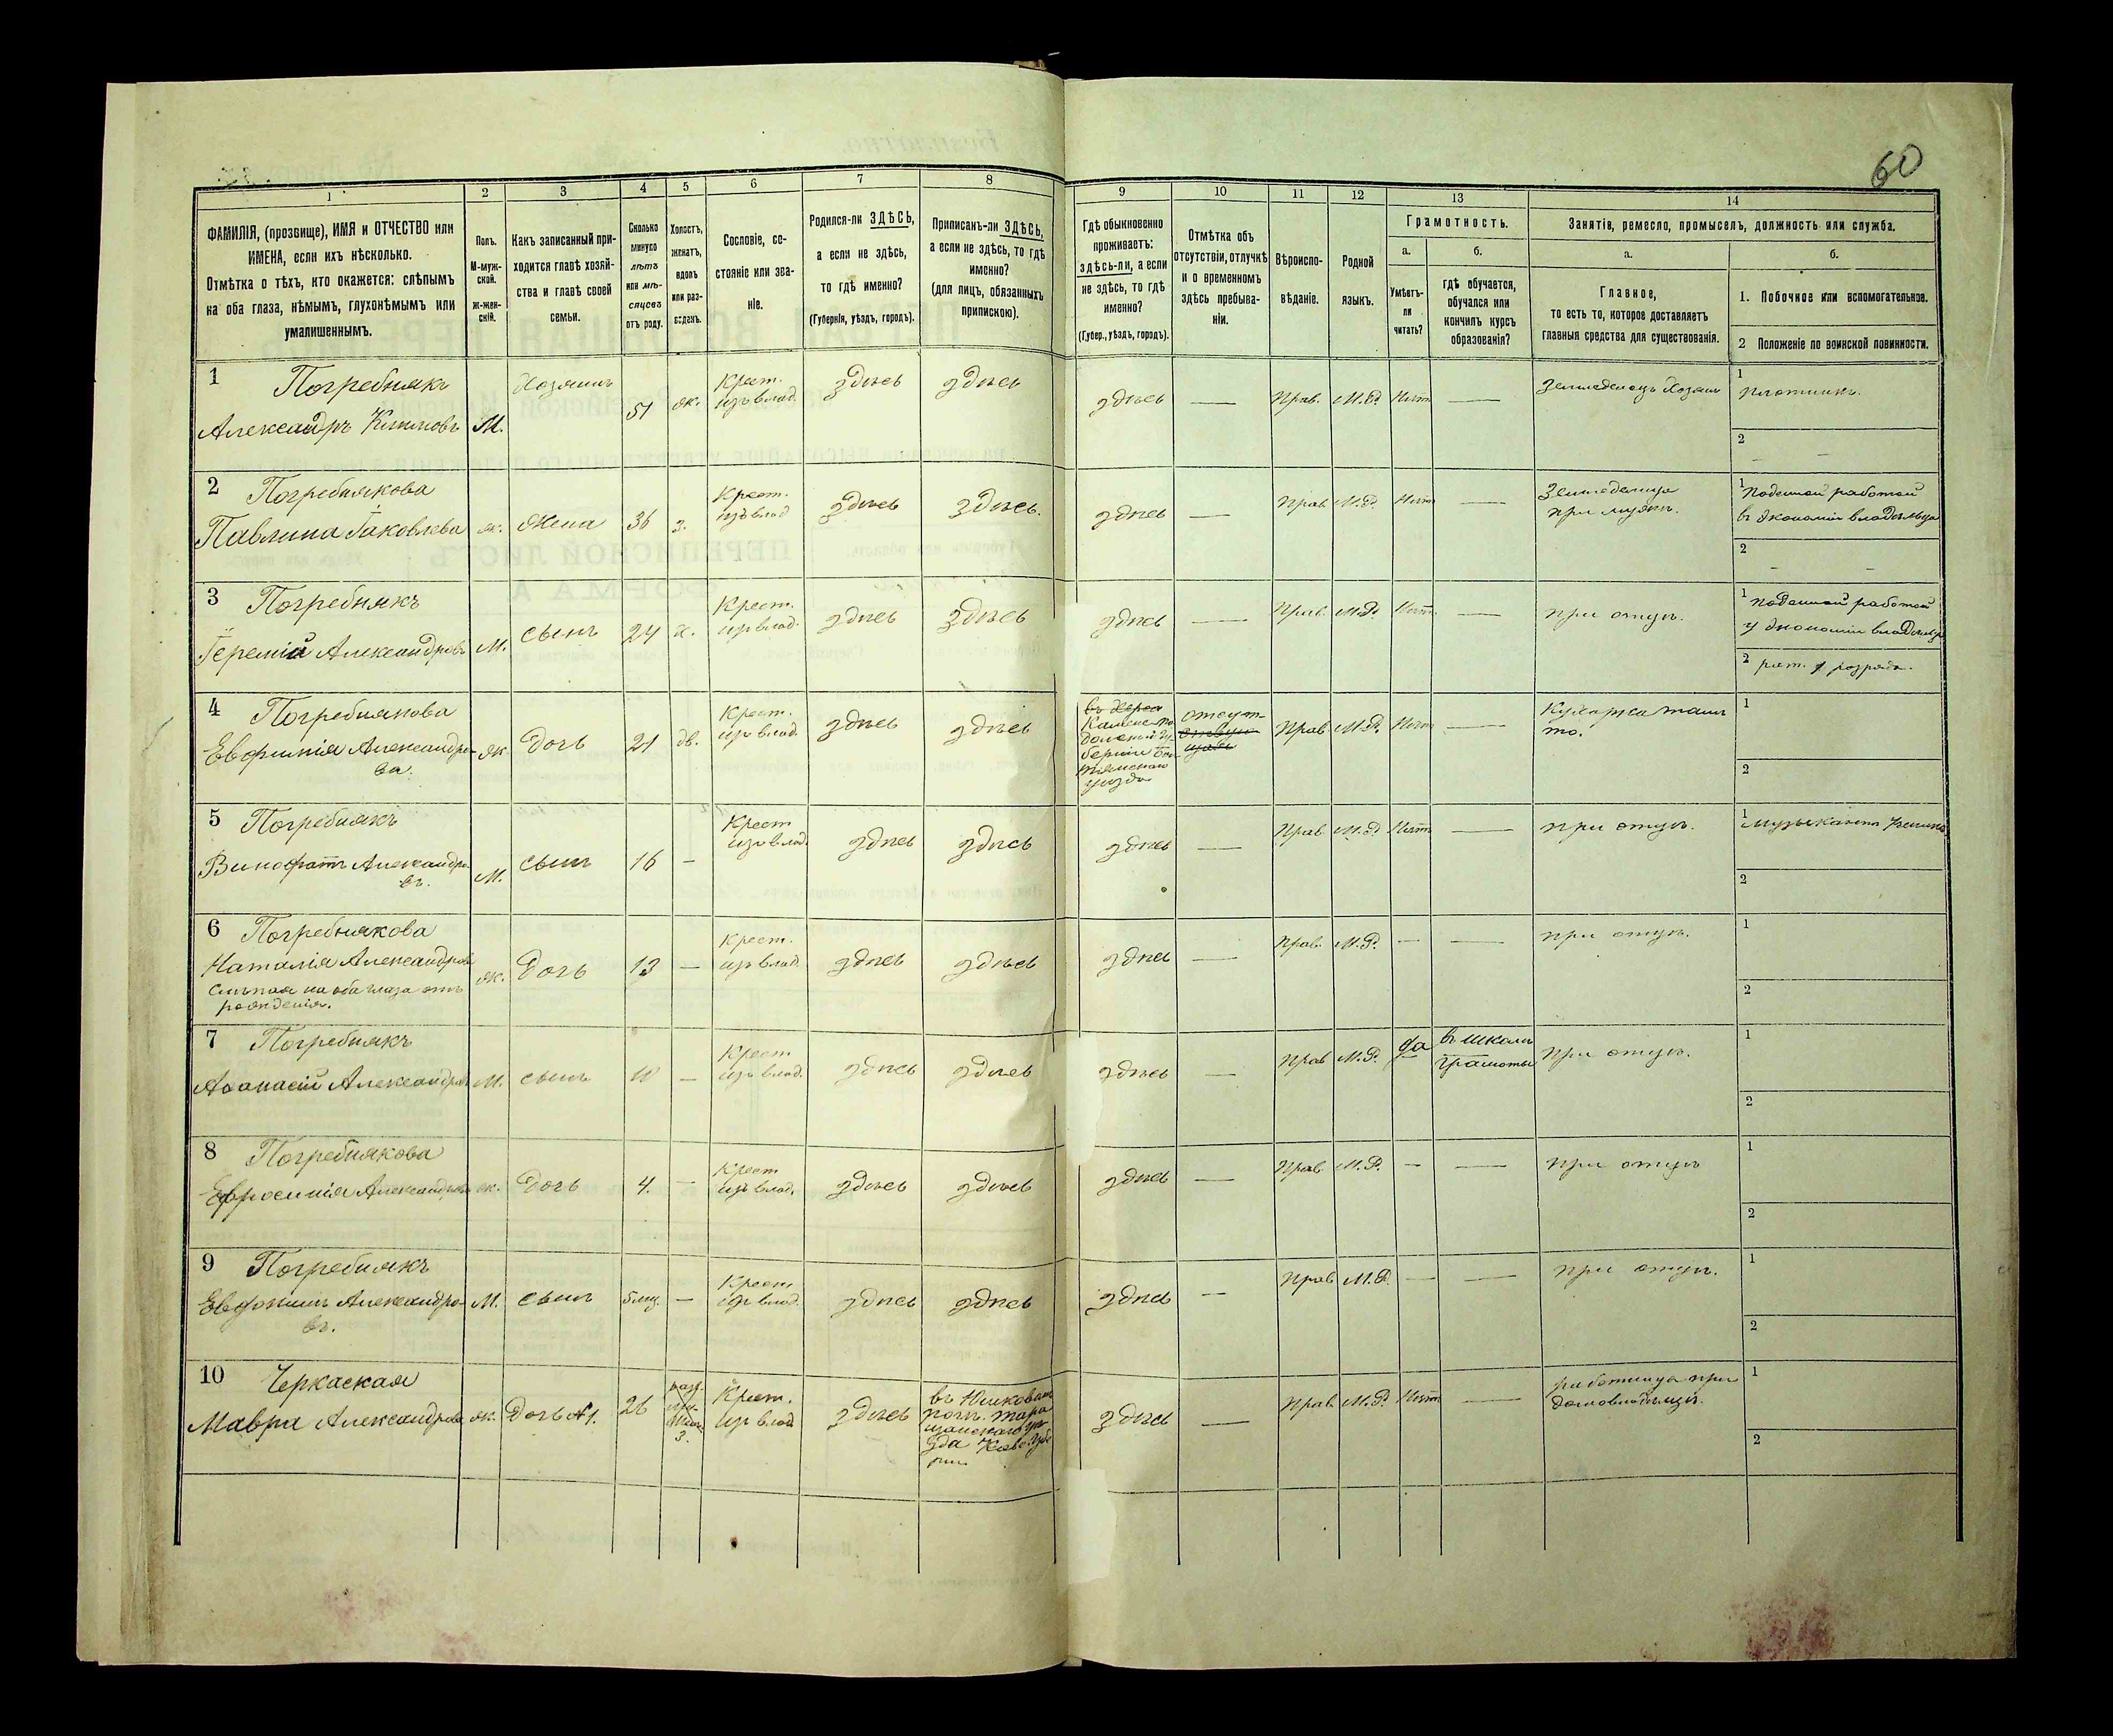 60
1
2
3
4
5
6
7
8
9
10
11
12
13
14
ФАМИЛІЯ, (прозвище), ИМЯ и ОТЧЕСТВО или
ИМЕНА, если ихъ нѣсколько.
Отмѣтка о тѣхъ, кто окажется: слѣпымъ
на оба глаза, нѣмымъ, глухонѣмымъ или
умалишеннымъ.
Полъ.
М-муж-
ской.
ж-жен-
скій.
Какъ записанный при-
ходится главѣ хозяй-
ства и главѣ своей
семьи.
Сколько
минуло
лѣтъ
или мѣ-
сяцевъ
отъ роду.
Холостъ,
женатъ,
вдовъ
или раз-
веденъ.
Сословіе, со-
стояніе или зва-
ніе.
Родился-ли ЗДѢСЬ,
а если не здѣсь,
то гдѣ именно?
(Губернія, уѣздъ, городъ).
Приписанъ-ли ЗДѢСЬ,
а если не здѣсь, то гдѣ
именно?
(для лицъ, обязанныхъ
припискою).
Гдѣ обыкновенно
проживаетъ:
здѣсь-ли, а если
не здѣсь, то гдѣ
именно?
(Губер., уѣздъ, городъ).
Отмѣтка объ
отсутствіи, отлучкѣ
и о временномъ
здѣсь пребыва-
ніи.
Вѣроиспо-
вѣданіе.
Родной
языкъ.
Грамотность.
а.
Умѣетъ-
ли
читать?
б.
гдѣ обучается,
обучался или
кончилъ курсъ
образованія?
Занятія, ремесло, промыселъ, должность или служба.
а.
Главное,
то есть то, которое доставляетъ
главныя средства для существованія.
б.
1. Побочное или вспомогательное.
2 Положеніе по воинской повинности.
1 Погребнякъ
Александръ Климовъ
М.
Хозяинъ
51
ж.
Крест.
изъ влад.
здѣсь
здѣсь
здѣсь
—
Прав.
М.Р.
Нѣтъ
—
Земледѣлецъ Хозяинъ
1 плотникъ.
2 – –
2 Погребнякова
Павлина Іаковлева
ж.
жена
36
з.
Крест.
изъ влад
здѣсь
здѣсь.
здѣсь
—
Прав
М.Р.
Нѣтъ
—
Земледѣлица
при мужѣ.
1 Поденной работой
въ экономіи владѣльца
2 – –
3 Погребнякъ
Іеремій Александровъ
М.
сынъ
24
х.
Крест.
изъ влад.
здѣсь
здѣсь
здѣсь
—
Прав.
М.Р.
Нѣтъ
—
при отцѣ.
1 Поденной работой
у экономіи владѣльца
2 рат. 1 розряда.
4 Погребнякова
Евфимія Александро-
ва.
ж.
дочь
21
дв.
Крест.
изъ влад.
здѣсь
здѣсь
въ Херсо
Каменецъ По
дольской Гу
берніи Бал
тянскаго
уѣзда
отсут-
Прав
М.Р.
Нѣтъ
—
Кухарка тамъ
то.
1
2
5 Погребнякъ
Александро-
въ.
М.
сынъ
16
–
Крест
изъ влад.
здѣсь
здѣсь
здѣсь
—
Прав.
М.Р
Нѣтъ
—
при отцѣ.
1 музыкантъ
2
6 Погребнякова
Наталія Александров
Слѣпая на оба глаза отъ
рожденія.
ж.
дочь
13
—
Крест.
изъ влад.
здѣсь
здѣсь
здѣсь
—
Прав.
М.Р.
—
—
при отцѣ.
1
2
7 Погребнякъ
Аѳанасій Александров
М.
сынъ
10
—
Крест
изъ влад.
здѣсь
здѣсь
здѣсь
—
Прав
М.Р.
да
въ школѣ
грамоты
при отцѣ.
1
2
8 Погребнякова
Ефросинія Александрова
ж.
дочь
4.
—
Крест
изъ влад.
здѣсь
здѣсь
здѣсь
—
Прав.
М.Р.
—
—
при отцѣ
1
2
9 Погребнякъ
Евфимъ Александро-
въ.
М.
сынъ
5 мц.
—
Крест
изъ влад.
здѣсь
здѣсь
здѣсь
—
Прав
М.Р.
—
—
при отцѣ.
1
2
10 Черкаская
Мавра Александрова
ж.
Дочь №1.
26
з.
Крест.
изъ влад
здѣсь
въ Юшковомъ
Розѣ. Тара
щанскаго уѣ
зда Кіев. Губе
рніи
здѣсь
—
Прав
М.Р.
Нѣтъ
—
работница при
домовладѣльцѣ.
1
2